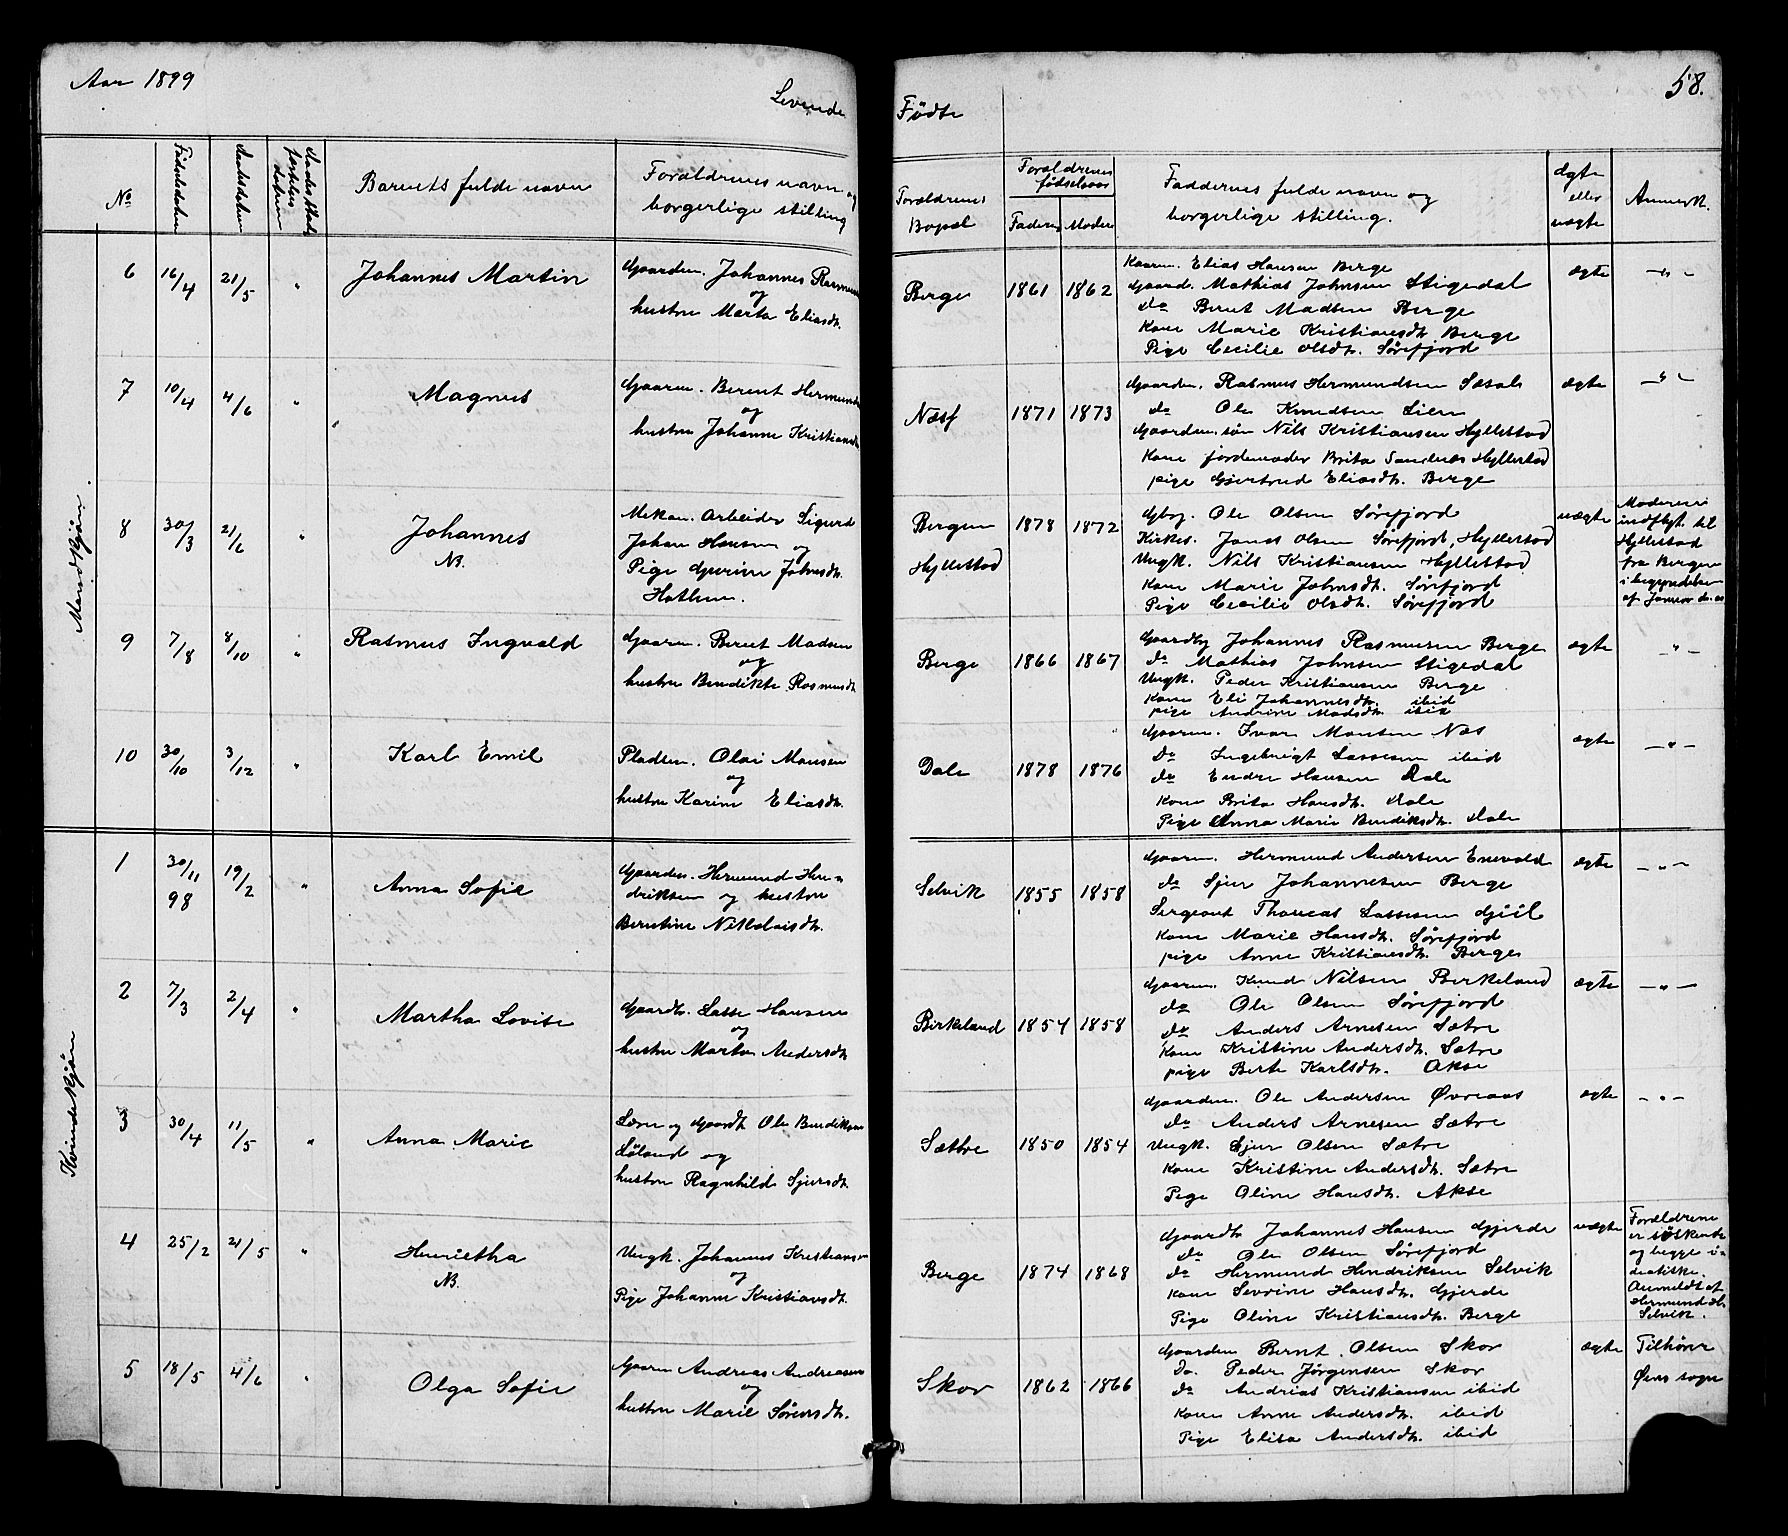 Aar 1899
Levende
Fødte
58.
No
Fødselsdatum
Daabsdatum
Barnets fulde navn
Forældrenes navn og
borgerlige stilling
Forældrenes
Bopæl
Forældrenes
fødselsaar
Faderens
Moderens
Faddernes fulde navn og
borgerlige stilling.
ægte
eller
uægte
Anmerk.
Mandkjøn.
6 16/4 21/5 " Johannes Martin
Gaardm. Johannes Rasmussen
og
hustru Marta Eliasdtr.
Berge 1861 1862
Kaarm. Elias Hansen Berge
Gaard. Mathias Johnsen Stigedal
do Bernt Madsen Berge
Kone Marie Kristiansdtr Berge
Pige Cecilie Olsdtr. Sørefjord
ægte - " -
7 10/4 4/6 " Magnus
Gaarm. Berent Hermunds
og
hustru Johanne Kristiansd
Næss 1871 1873
Gaardm. Rasmus Hermundsen
do Ole Knudsen Lien
Gaardm. søn Nils Kristiansen Hyllestad
Kone jordemoder Brita Sandnes Hyllestad
pige Gjertrud Eliasdtr. Berge
ægte - " -
8 30/3 21/6 " Johannes
NB.
Mekan. Arbeider Sigurd
Johan Hansen og
Pige Gurine Johnsdtr.
Hatlem.
Bergen
Hyllestad
1878 1872
Gbrg. Ole Olsen Sørefjord
Kirkes. Jonas Olsen Sørefjord, Hyllestad
Ungk. Nils Kristiansen Hyllestad
Kone Marie Johnsdtr. Sørefjord
Pige Cecilie Olsdtr. Sørefjord
uægte
Moderen
indflyt. til
Hyllestad
fra Bergen
i begyndelsen
af Januar d. a.
9 7/8 8/10 " Rasmus Ingvald
Gaarm. Bernt Madsen
og
hustru Bendikte Rasmusdt
Berge 1866 1867
Gaardbg Johannes Rasmussen Berge
do Mathias Johnsen Stigedal
Ungk. Peder Kristiansen Berge
Kone Eli Johannesdtr. ibid
pige Andrine Madsdtr. ibid
ægte - " -
10 30/10 3/12 " Karl Emil
Pladsm. Olai Monsen
og
hustru Karine Eliasdtr.
Dale 1878 1876
Gaarm. Ivar Monsen Næs
Do Ingebrigt Lassesen ibid
do Endre Hansen Dale
Kone Brita Hansdtr. Dale
Pige Anna Marie Bendiksdtr. Dale
ægte - " -
Kvindekjøn
1 30/11 98 19/2 " Anna Sofie
Gaardm. Hermund Hen-
driksen og hustru
Berntine Nikolaisdtr.
Selvik 1855 1858
Gaarm. Hermund Andersen Enevold
do Sjur Johannesen Berge
Sergeant Thomas Lassesen Gjiil
Kone Marie Hansdtr. Sørefjord
pige Anne Kristiansdtr. Berge
ægte - " -
2 7/3 2/4 " Martha Lovise
Gaardbr. Lasse Hansen
og
hustru Marta Andersdtr
Birkeland 1854 1858
Gaarm. Knud Nilsen Birkeland
do Ole Olsen Sørefjord
do Anders Arnesen Sætre
Kone Kristine Andersdtr. Sætre
pige Berte Karlsdtr. Akse
ægte - " -
3 30/4 11/5 " Anna Marie
Lærer og Gaardbr Ole Bendiksen
Løland og
hustru Ragnhild Sjursdtr.
Sætre 1850 1854
Gaardm. Ole Andersen Øvreaas
do Anders Arnesen Sætre
Ungk. Sjur Olsen Sætre
Kone Kristine Andersdtr. Sætre
Pige Oline Hansdtr. Akse
ægte - " -
4 25/2 21/5 " Henrietha
NB.
Ungk. Johannes Kristiansen
og
Pige Johanne Kristiansdtr.
Berge 1874 1868
Gaardbr Johannes Hansen Gjerde
do Ole Olsen Sørefjord
do Hermund Hendriksen Selvik
Kone Severine Hansdtr. Gjerde
Pige Oline Kristiansdtr. Berge
uægte
Forældrene
er søskende
og begge i-
diotiske.
Anmeldt af
Hermund H.
Selvik.
5 18/5 4/6 " Olga Sofie
Gaarm Andreas Andreasen
og
hustru Marie Sørensdtr.
Skor 1862 1866
Gaardm Bernt Olsen Skor
Do. Peder Jørgensen Skor
do Andrias Kristiansen ibid
Kone Anne Andersdtr. ibid
Pige Elisa Andersdtr. ibid
ægte
Tilhører
Øens sogn